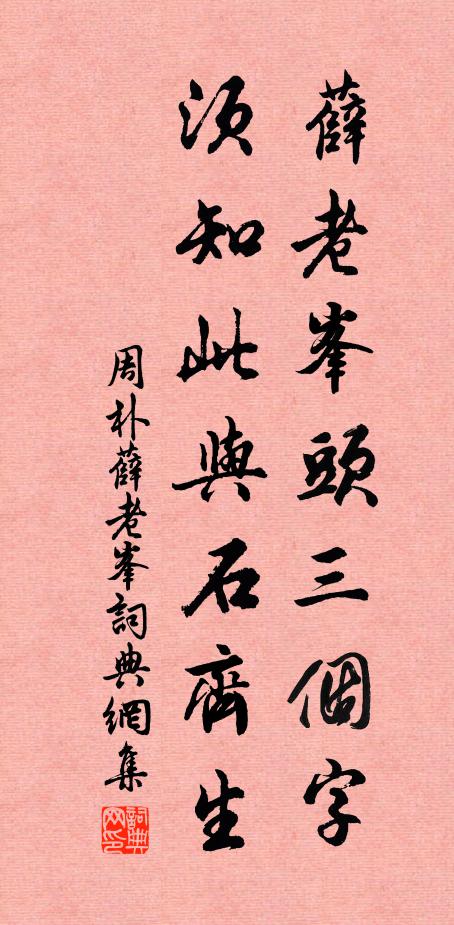 薛老峯頭三個字
須知此與石齊生
周朴薛老峯詞典網集
詞典网印